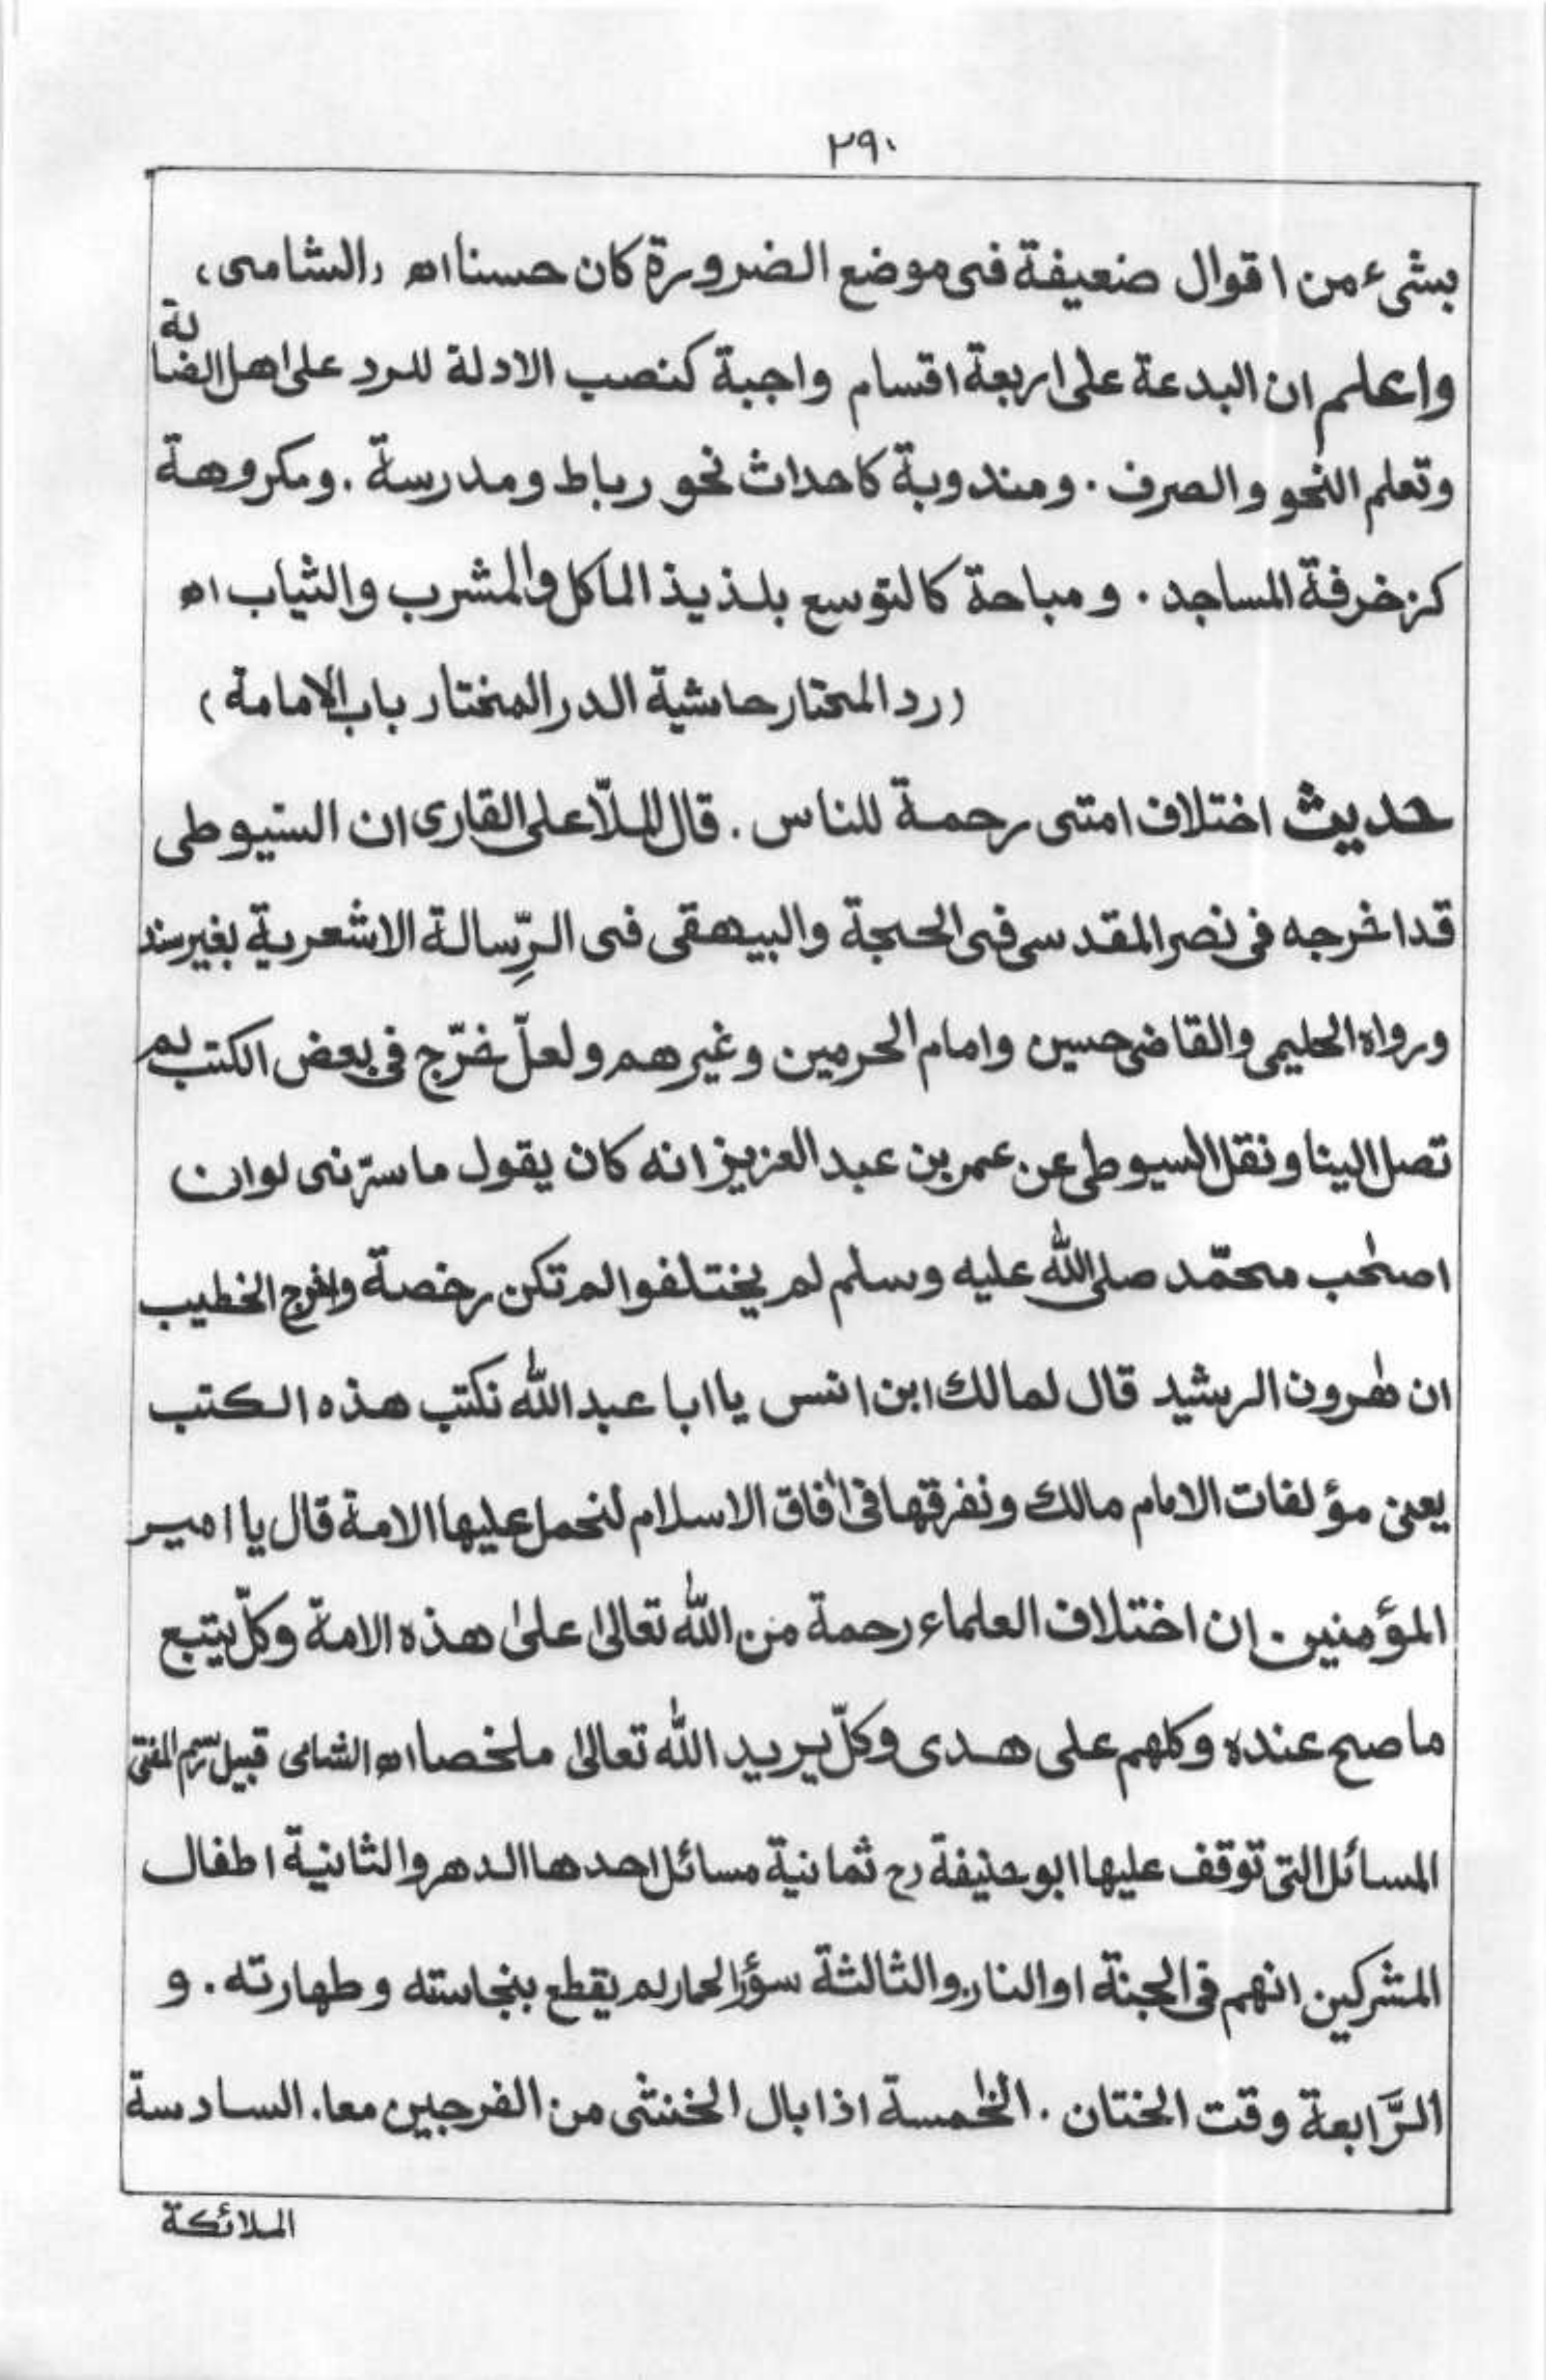 ٢٩٠
بشیء من اقوال ضعيفة فى موضع الضرورة كان حسنا اه (الشامى)
واعلم ان البدعة على اربعة اقسام واجبة كنصب الادلة للرد على اهل الضالة
وتعلم النحو والصرف . ومندوبة كاحداث نحو رباط ومدرسة . ومكروهة
كزخرفة المساجد . ومباحة كالتوسع بلذيذ الماكل والمشرب والثياب اه
(رد المحتار حاشية الدر المختار باب الامامة)
حديث اختلاف امتى رحمة للناس . قال الملّا على القارى ان السيوطى
قد اخرجه فى نصر المقدسى فى الحجة والبيهقى فى الرِّسالة الاشعرية بغير سند
ورواه الحليمى والقاضى حسين وامام الحرمين وغيرهم ولعلّ خرّج فى بعض الكتب لم
تصل الينا ونقل السيوطى عن عمر بن عبد العزيز انه كان يقول ما سرّنى لو ان
اصحٰب محمّد صلى الله عليه وسلم لم يختلفوا لم تكن رخصة واخرج الخطيب
ان هٰرون الرشيد قال لمالك ابن انس يا ابا عبد الله نكتب هذه الكتب
يعنى مؤلفات الامام مالك ونفرقها فى اٰفاق الاسلام لنحمل عليها الامة قال يا امير
المؤمنين . ان اختلاف العلماء رحمة من الله تعالىٰ علىٰ هذه الامة وكلّ يتبع
ما صح عنده وكلهم على هدى وكلّ يريد الله تعالىٰ ملخصا اه الشامى قبيل رسم المفتى
المسائل التى توقف عليها ابو حنيفة رح ثمانية مسائل احدها الدهر والثانية اطفال
المشركين انهم فى الجنة او النار والثالثة سؤر الحمار لم يقطع بنجاسته وطهارته . و
الرَّابعة وقت الختان . الخٰمسة اذا بال الخنثى من الفرجين معا . السادسة
الملائكة